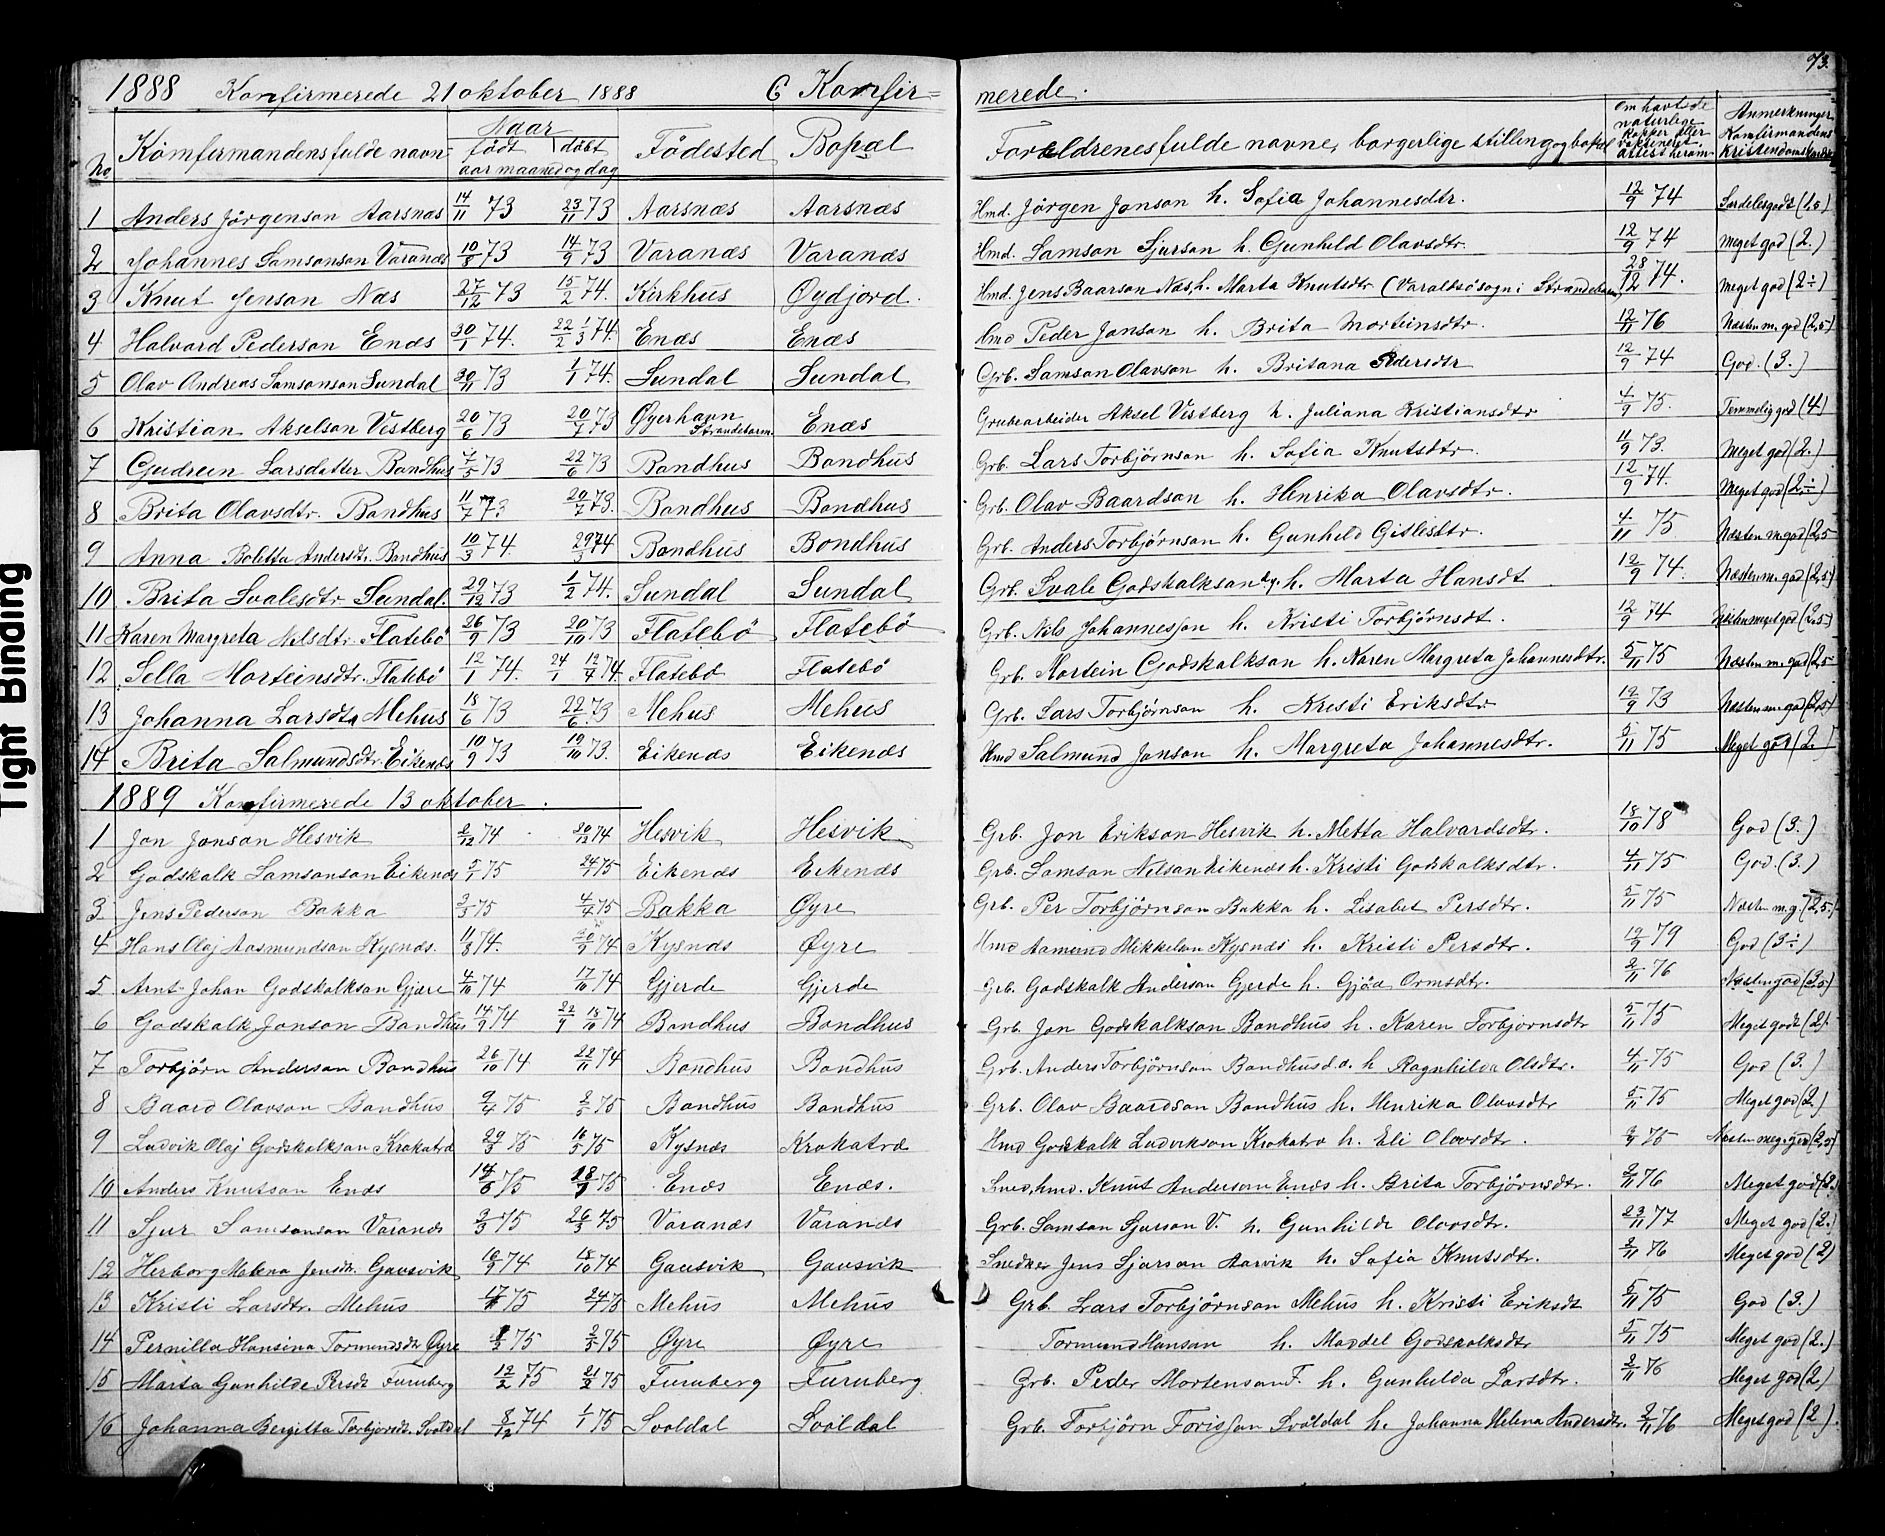 73.
1888 Konfirmerede 21 oktober 1888 C Konfir= merede.
No Komfirmandens fulde navn Naar födt döbt aar maaned og dag Födested Bopæl Foreldrenes fulde navne, borgerlige stilling og bopel Om havt de naturlige kopper eller vaksineret attest herom Anmerkninger Komfirmandens Kristendoms
1 Anders Jörgenson Aarsnæs 14/11 73 23/11 73 Aarsnæs Aarsnæs Hmd. Jörgen Jonson h. Sofia Johannesdtr. 12/9 74 Særdelesgodt (1,5)
2 Johannes Samsonson Varanæs 10/8 73 14/9 73 Varanæs Varanæs Hmd. Samson Sjurson h. Gunhild Olavsdtr. 12/9 74 Meget god (2.)
3 Knut Jenson Næs 27/12 73 15/2 74. Kirkhus Øydjord. Hmd. Jens Baarson Næs, h. Marta Knutsdtr (Varaldsö sogn i Strandebarm) 28/12 74. Meget god (2÷)
4 Halvard Pederson Enæs 30/1 74. 22/2 1/3 74. Enæs Enæs Hmd Peder Janson h. Brita Morteinsdtr. 12/11 76 Næsten m. god (2,5)
5 Olav Andreas Samsonson Sundal 30/11 73 1/1 74. Sundal Sundal Grb. Samson Olavson h. Britana Pedersdtr 12/9 74 God. (3.)
6 Kristian Akselson Vestberg 20/6 73 20/7 73 Øyerhavn Strandebarm. Enæs Grubearbeider Aksel Vestberg h. Juliana Kristiansdtr 4/9 75. Temmelig god (4)
7 Gudrun Larsdatter Bondhus 4/5 73 22/6 73 Bondhus Bondhus Grb. Lars Torbjörnson h. Sofia Knutsdtr. 11/9 73. Meget god (2.)
8 Brita Olavsdtr. Bondhus 11/7 73 20/7 73. Bondhus Bondhus Grb. Olav Baardson h. Henrika Olavsdtr. 12/9 74. Meget god (2÷)
9 Anna Boletta Andersdt. Bondhus 10/3 74. 29/3 74 Bondhus Bondhus Grb. Anders Torbjörnson h. Gunheld Gitlesdtr. 4/11 75 Næsten m. god (2,5
10 Brita Svalesdtr Sundal. 29/12 73 1/2 74. Sundal Sundal Grb. Svale Godskalkson h. Marta Hansdt 12/9 74. Næsten m. god (2,5)
11 Karen Margreta Nilsdtr. Flatebö 26/9 73 20/10 73 Flatebö Flatebö Grb. Nils Johannesson h. Kristi Torbjörnsdt. 12/9 74 Næsten meget god (2,5)
12 Sella Morteinsdtr. Flatebö 12/1 74. 24/1 12/4 74 Flatebö Flatebö Grb. Mortein Godskalkson h. Karen Margreta Johannesdtr. 5/11 75 Næsten m. god (2,5
13 Johanna Larsdtr Mehus 15/6 73 22/6 73 Mehus Mehus Grb. Lars Torbjörnson h. Kristi Eriksdtr 12/9 73 Næsten m. god (2,5)
14 Brita Salmundsdtr. Eikenæs 10/9 73 19/10 73. Eikenæs Eikenæs Hmd Salmund Janson h. Margreta Johannesdtr. 5/11 75 Meget god (2.)
1889 Konfirmerede 13 oktober.
1 Jon Jonson Hesvik 2/12 74 20/12 74 Hesvik Hesvik Grb. Jon Erikson Hesvik h. Metta Halvardsdtr. 18/10 78 God (3.)
2 Godskalk Samsonson Eikenæs 5/1 75 24/1 75 Eikenæs Eikenæs Grb. Samson Nilson Eikenæs h. Kristi Godskalksdtr. 4/11 75 God. (3.)
3 Jens Pederson Bakka 3/3 75 4/4 75 Bakka Øyre Grb. Per Torbjörnson Bakka h. Lisabet Persdtr. 5/11 75 Næsten m. g. (2,5.)
4 Hans Olaj Aasmundson Kysnæs. 11/8 74. 20/9 74 Kysnæs Øyre Hmd Aamund Mikkelson Kysnæs h. Kristi Persdtr. 12/9 79 God (3÷)
5 Arnt Johan Godskalkson Gjære 4/10 74 17/10 74 Gjerde Gjerde Grb. Godskalk Anderson Gjerde h. Gjöa Ormsdtr. 2/11 76 Næsten god (3,5)
6 Godskalk Jonson Bondhus 14/9 74 22/9 18/10 74 Bondhus Bondhus Grb. Jon Godskalkson Bondhus h. Karen Torbjornsdtr 5/11 75 Meget godt (2).
7 Torbjörn Anderson Bondhus 26/10 74 22/11 74 Bondhus Bondhus Grb. Anders Torbjörnson Bondhus d.a. h Ragnhilda Olsdtr. 4/11 75 God (3.)
8 Baard Olavson Bondhus 9/4 75 2/5 75 Bondhus Bondhus Grb. Olav Baardson Bondhus h. Henrika Olavsdtr 5/11 75 Meget god (2.)
9 Ludvik Olaj Godskalkson Krokatræ 29/3 75 16/5 75 Kysnæs Krokatræ Hmd Godskalk Ludvikson Krokatræ h. Eli Olavsdtr. 75 Næsten meget god (2,5)
10 Anders Knutson Enæs 14/6 75 18/7 75 Enæs Enæs. Smed, hmd. Knut Anderson Enæs h. Brita Torbjörnsdtr. 2/11 76 Meget god (2.
11 Sjur Samsonson Varanæs 3/3 75 26/3 75 Varanæs Varanæs Grb. Samson Sjurson V. h. Gunhilde Olavsdtr. 23/11 77 Meget god (2.)
12 Herborg Malena Jensdt. Gausvik 16/9 74 18/10 74 Gausvik Gausvik Snedker Jens Sjurson Aarvik h. Sofia Knutsdtr. 2/11 76 Meget god (2)
13 Kristi Larsdtr. Mehus 75 24/ 75 Mehus Mehus Grb. Lars Torbjörnson Mehus h. Kristi Eriksdt 5/11 75 God (3.)
14 Pernilla Hansina Tormundsdtr Øyre 75 2/5 75 Øyre Øyre Tormund Hanson h. Maddel Godskalksdtr 5/11 75 Meget god (2.)
15 Marta Gunhilde Persdt Furuberg 12/2 75 21/2 75 Furuberg Furuberg Grb. Peder Mortenson F. h. Gunhilda Larsdtr. 2/11 76 Meget god (2.)
16 Johanna Bergitta Torbjorsdt. Svoldal 8/12 74 1/1 75 Svoldal Svoldal Grb. Torbjörn Torisson Svoldal h. Johanna Helena Andersdtr. 2/11 76 Meget god (2.)
Tight Binding